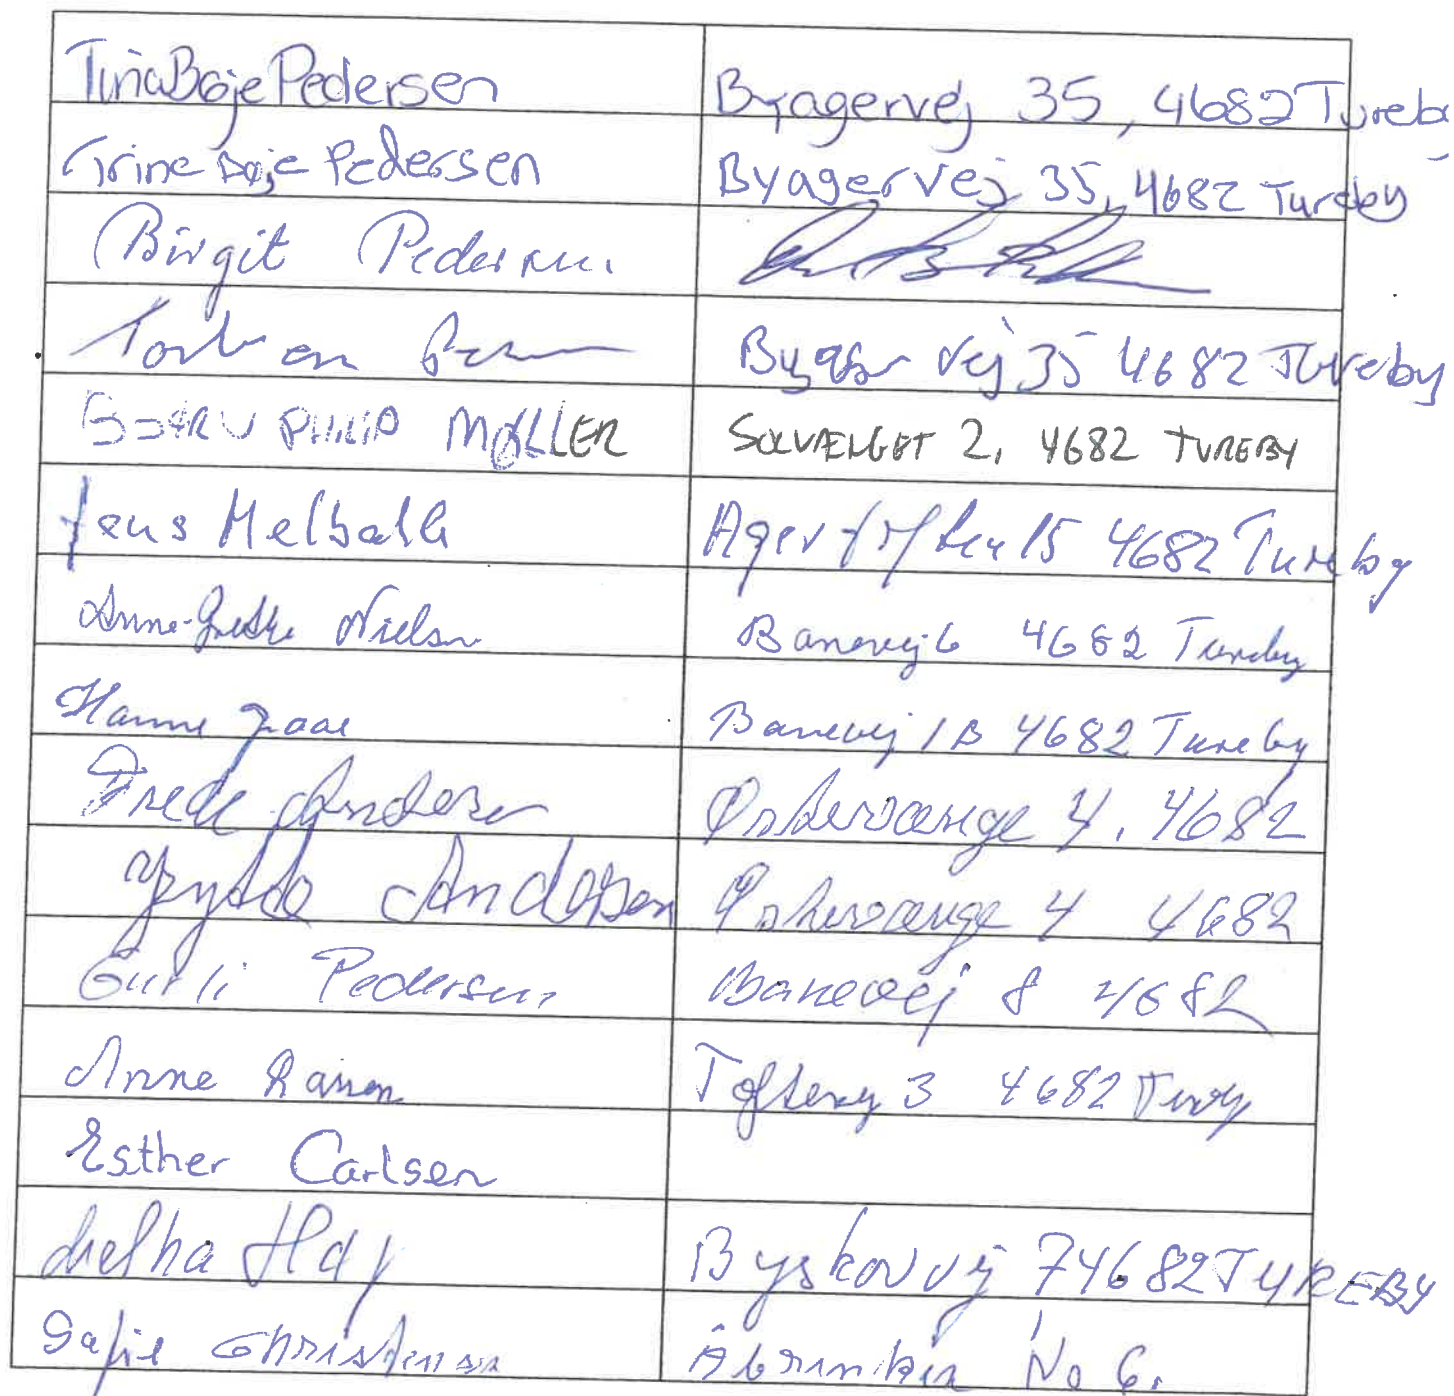 Tina Bøje Pedersen Byagervej 35, 4682 Tureby
Trine Bøje Pedersen Byagervej 35, 4682 Tureby
Birgit Pedersen
Vej 35 4682 Tureby
PHILIP MØLLER SOLVÆNGET 2, 4682 TUREBY
Jens 15 4682 Tureby
Anne-Grethe Nielsen Banevej 6 4682 Tureby
Hanne Banevej 1B 4682 Tureby
Frede Andersen Østervænge 4, 4682
Andersen Østervænge 4 4682
Gurli Pedersen Banevej 8 4682
Anne Toftevej 3 4682 Tureby
Esther Carlsen
Byskovvej 7 4682 TUREBY
Christensen No 6.